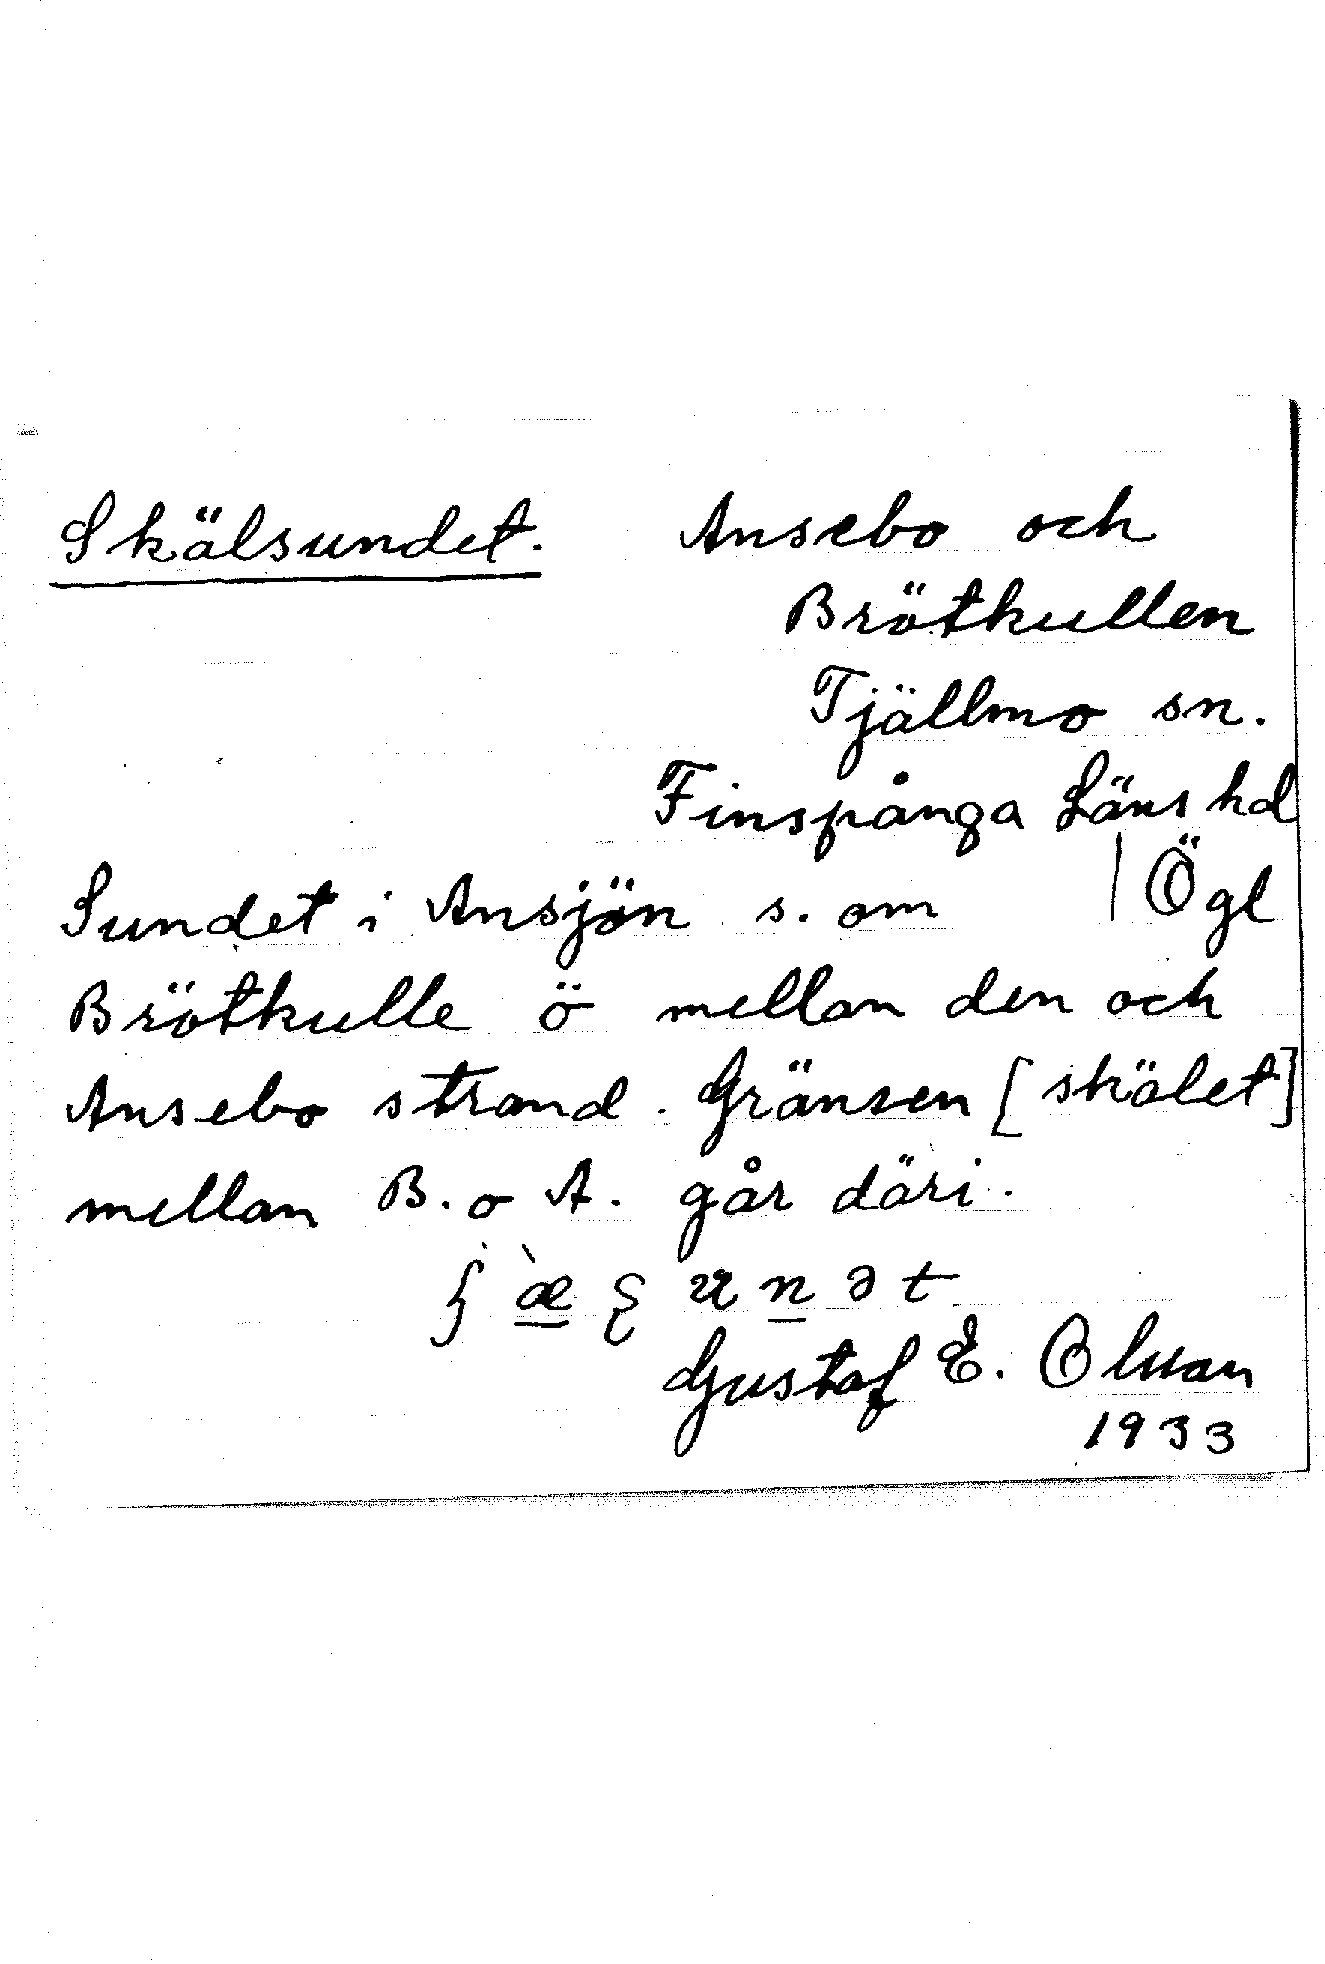 Skälsundet. Ansebo och
Brötkullen
Tjällmo sn.
Finspånga Läns hd
Ögl
Sundet i Ansjön s. om
Brötkulle ö mellan den och
Ansebo strand. Gränsen [skälet]
mellan B. o A. går däri.
Gustaf E. Olsson
1933